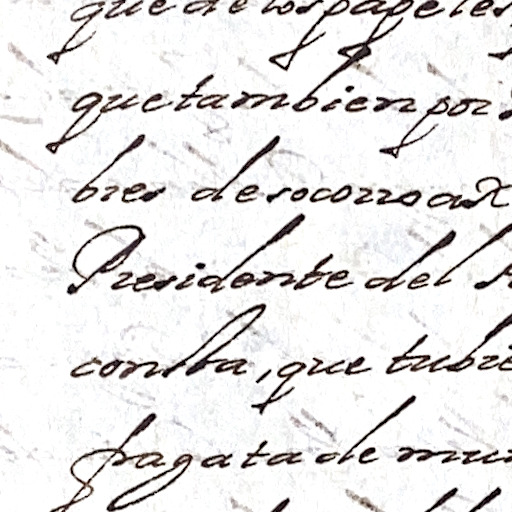 que de los papeles
que tambien por
bres de socorro a
Presidente del
consta, que tubie
fragata de mu